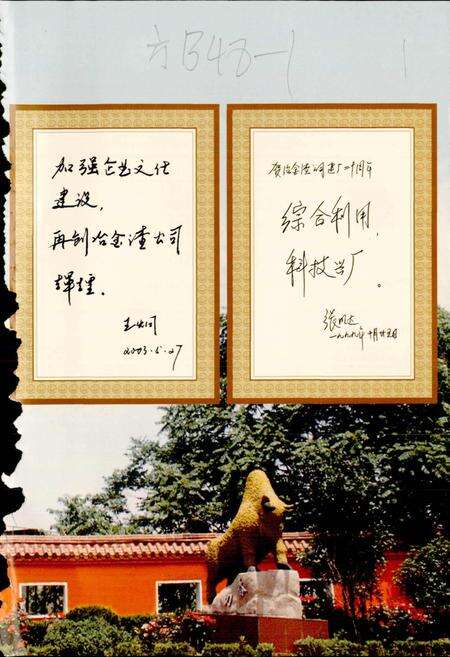 方B48-1
加强企业文化
建设，
再创冶金渣公司
辉煌。
2003.5.27
贺冶金渣公司建厂二十周年
综合利用，
科技兴厂。
张明达
一九九九年十月廿五日